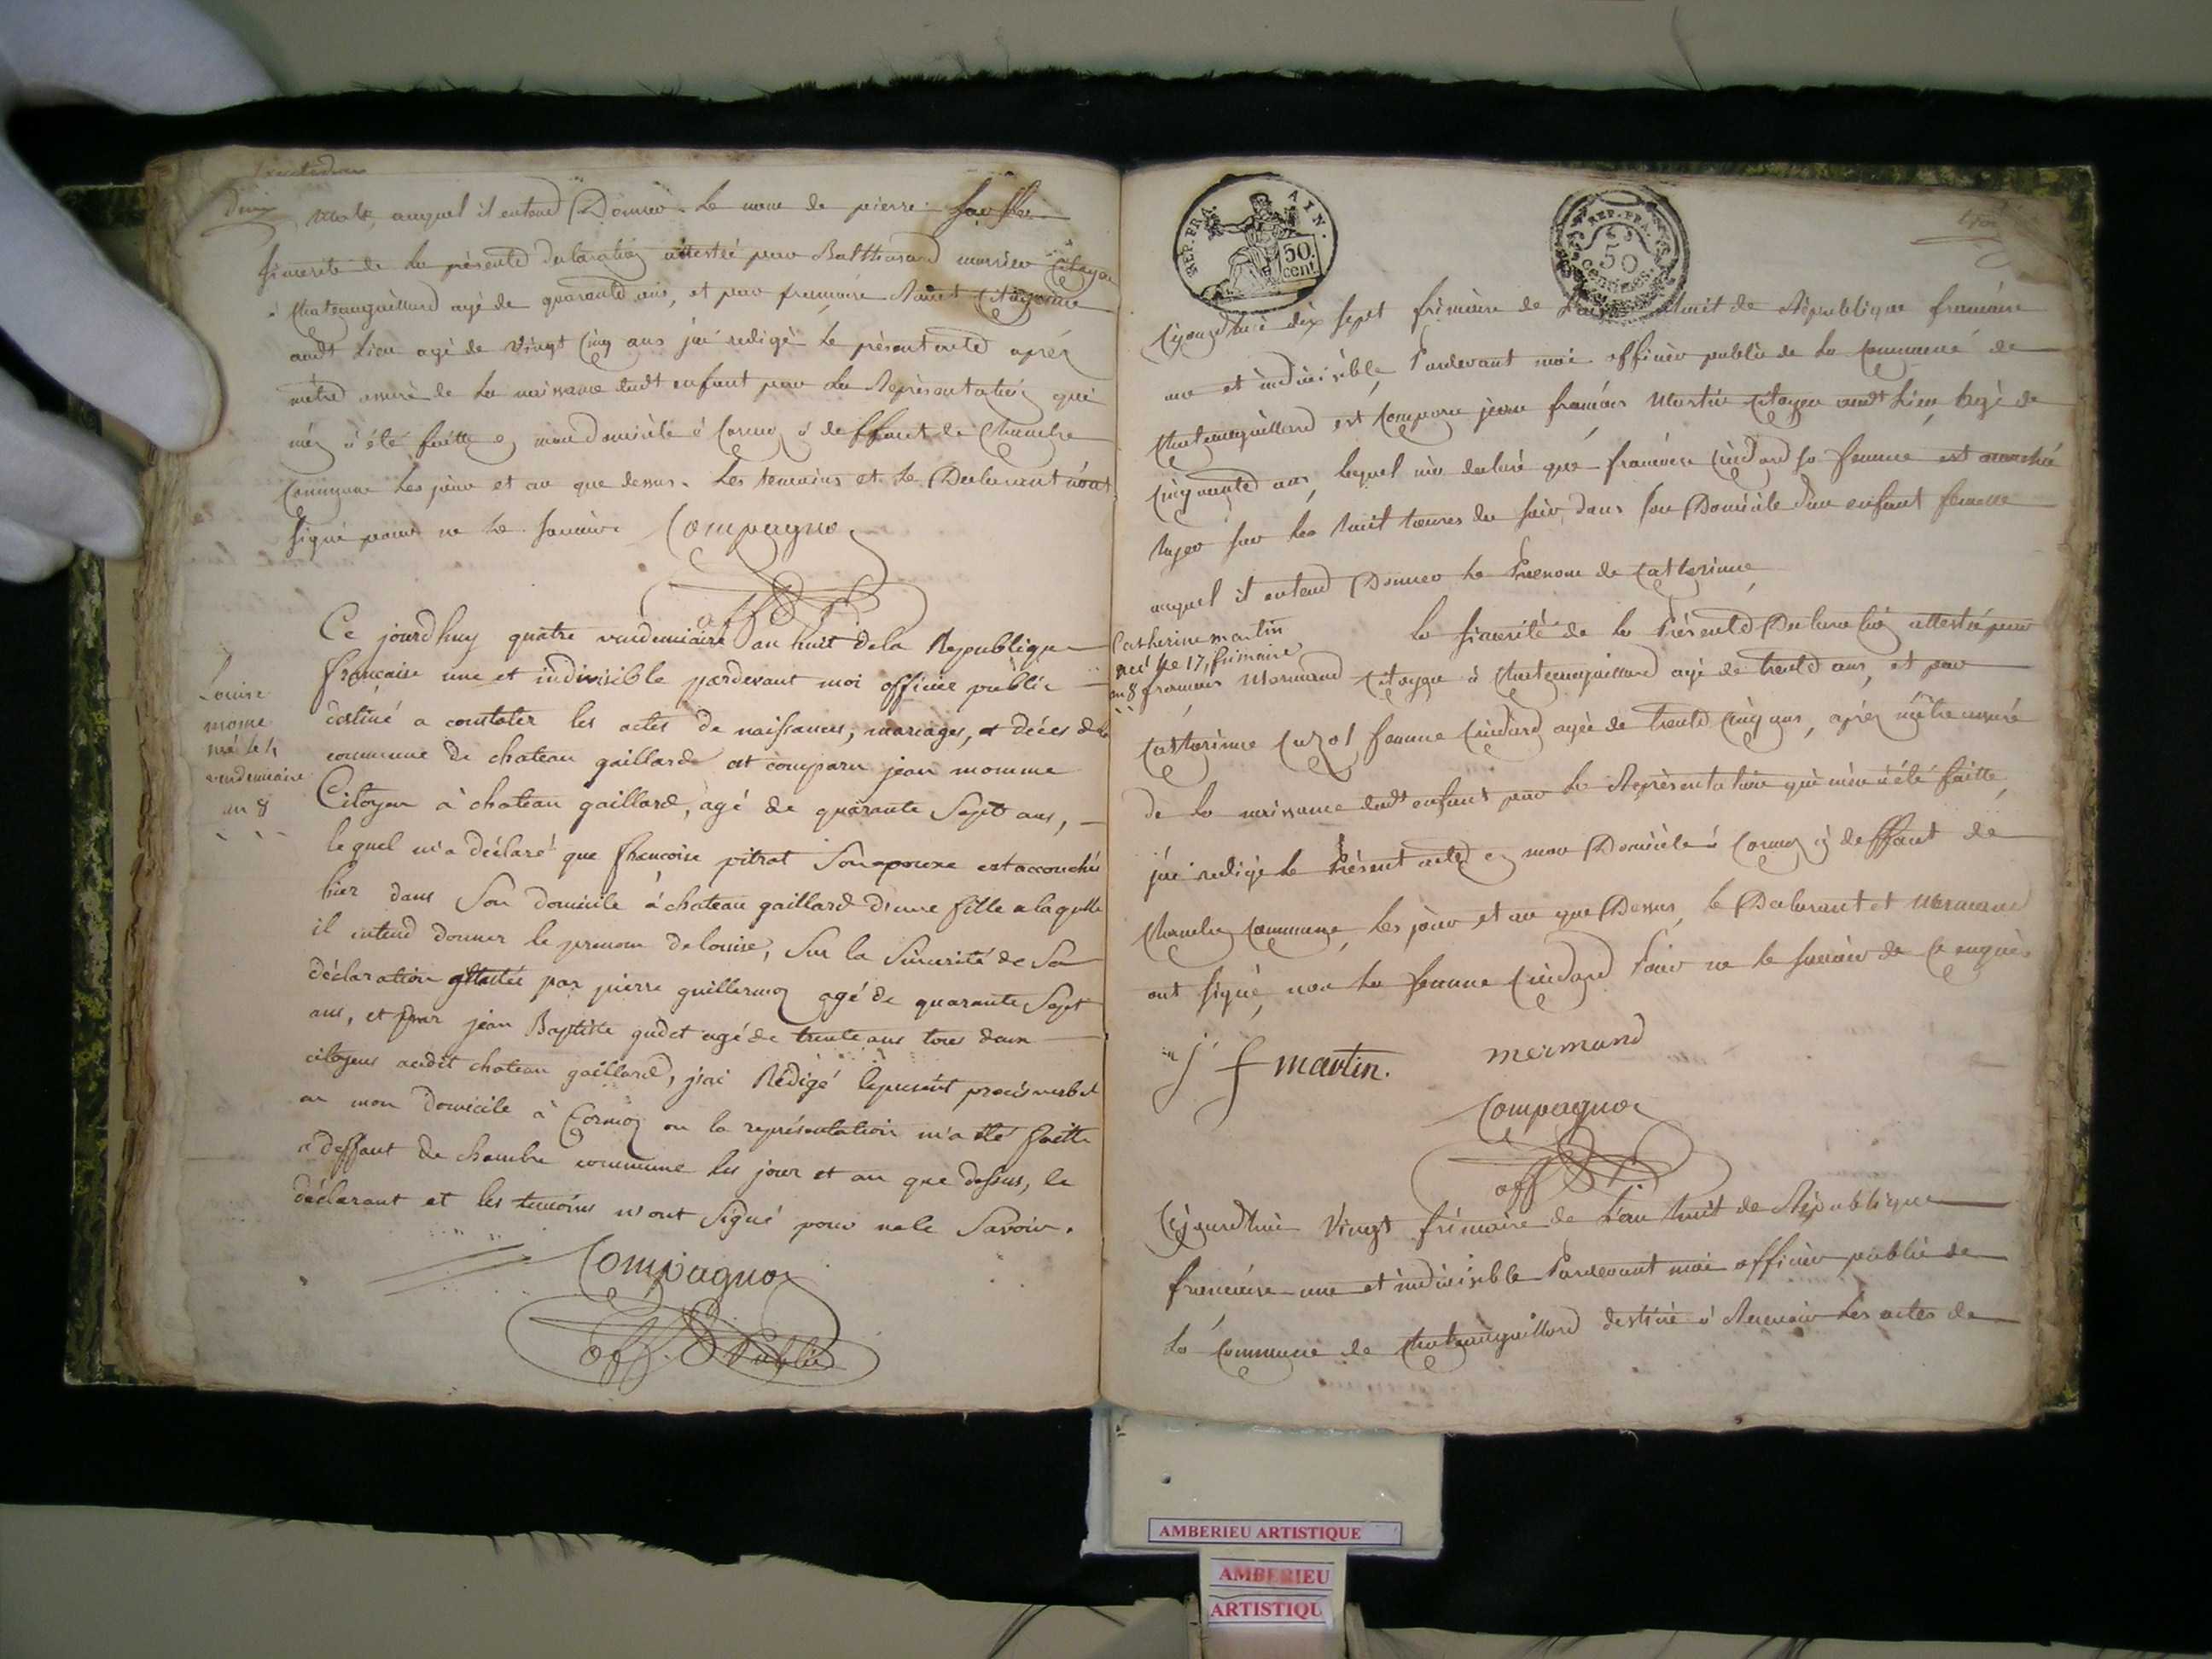 deux
male auquel il entend Donner le nom de pierre sur la
sincerite de la présente declaration attestée par Balthazard mercier Citoyen
à Chateaugaillard agé de quarante ans, et par francoise Citoyenne
audt Lieu agé de vingt Cinq ans jai redigé le présent acte aprés
mètre assuré de la naissance dudt enfant par la Représentation qui
men à été faitte en mon domicile à Cormoz à deffaut de Chambre
Commune les jour et an que dessus. Les temoins et le Declarant nont
signé pour ne le savoir. Compagnon
off P
Ce jourdhuy quatre vendemiaire an huit dela Republique
française une et indivisible pardevant moi officier public
destiné a constater les actes de naissances, mariages, et décés de la
commune de chateau gaillard est comparu jean momme
Citoyen à chateau gaillard, agé de quarante Sept ans,
lequel m'a déclaré que francoise pitrat Son epouse est accouchée
hier dans Son domicile à chateau gaillard d'une fille a laquelle
il entend donner le prenom de louise, Sur la Sincerité de Sa
déclaration attestée par pierre guillermoz agé de quarante Sept
ans, et par jean Baptiste gudet agé de trente ans tous deux
citoyens audit chateau gaillard, j'ai Rédigé le présent procés verbal
en mon domicile à Cormoz ou la représentation m'a été faitte
a deffaut de chambre commune les jour et an que dessus, le
déclarant et les temoins n'ont Signé pour ne le Savoir.
Louise
momme
né le 4
vendemiaire
an 8
Compagnon
off. Public
REP. FRA. AIN.
50.
cent.
REP. FRA.
50
CENTIMES
Cejourdhui dix sept frimaire de l'an huit de République francaise
une et indivisible Pardevant moi officier public de la Commune de
Chateaugaillard est Comparu jean francois Martin Citoyen audt Lieu agé de
Cinquante ans, lequel ma declaré que francoise Cuidard sa femme est accouchée
hyer sur les huit heures du soir, dans son Domicile d'un enfant femelle
auquel il entend Donner le Prenom de Catherinne
Catherine martin
neé le 17, frimaire
an 8
la sincerité de la Présente Declaration attestée par
francois Mermand Citoyen à Chateaugaillard agé de trente ans, et par
Catherinne femme Cuidard agée de trente Cinq ans, aprés mêtre assuré
de la naissance dudt enfant par la Représentation qui men à été faitte
jai redigé le Présent acte en mon Domicile à Cormoz à deffaut de
Chambre Commune, les jour et an que Dessus, le Declarant et Mermand
ont signé, non la femme Cuidard Pour ne le savoir de ce enquis
j f martin. mermand
Compagnon
off P
Cejourdhui Vingt frimaire de L'an huit de République
francaise une et indivisible Pardevant moi officier public de
la Commune de Chateaugaillard destiné à Recevoir les actes de
AMBERIEU ARTISTIQUE
AMBERIEU
ARTISTIQU